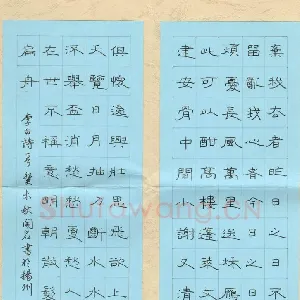 棄我去者昨日之日不
留亂我心者今日之日
煩憂長風萬里送秋雁
此可以酣高樓蓬萊文
建安骨中間小謝又清
俱懷逸興壯思飛欲上
天覽日月抽刀斷水水
流舉盃消愁愁更愁人
在世不稱意明朝散髮
扁舟
李白詩 癸未秋 書於揚州
shufawang.cn